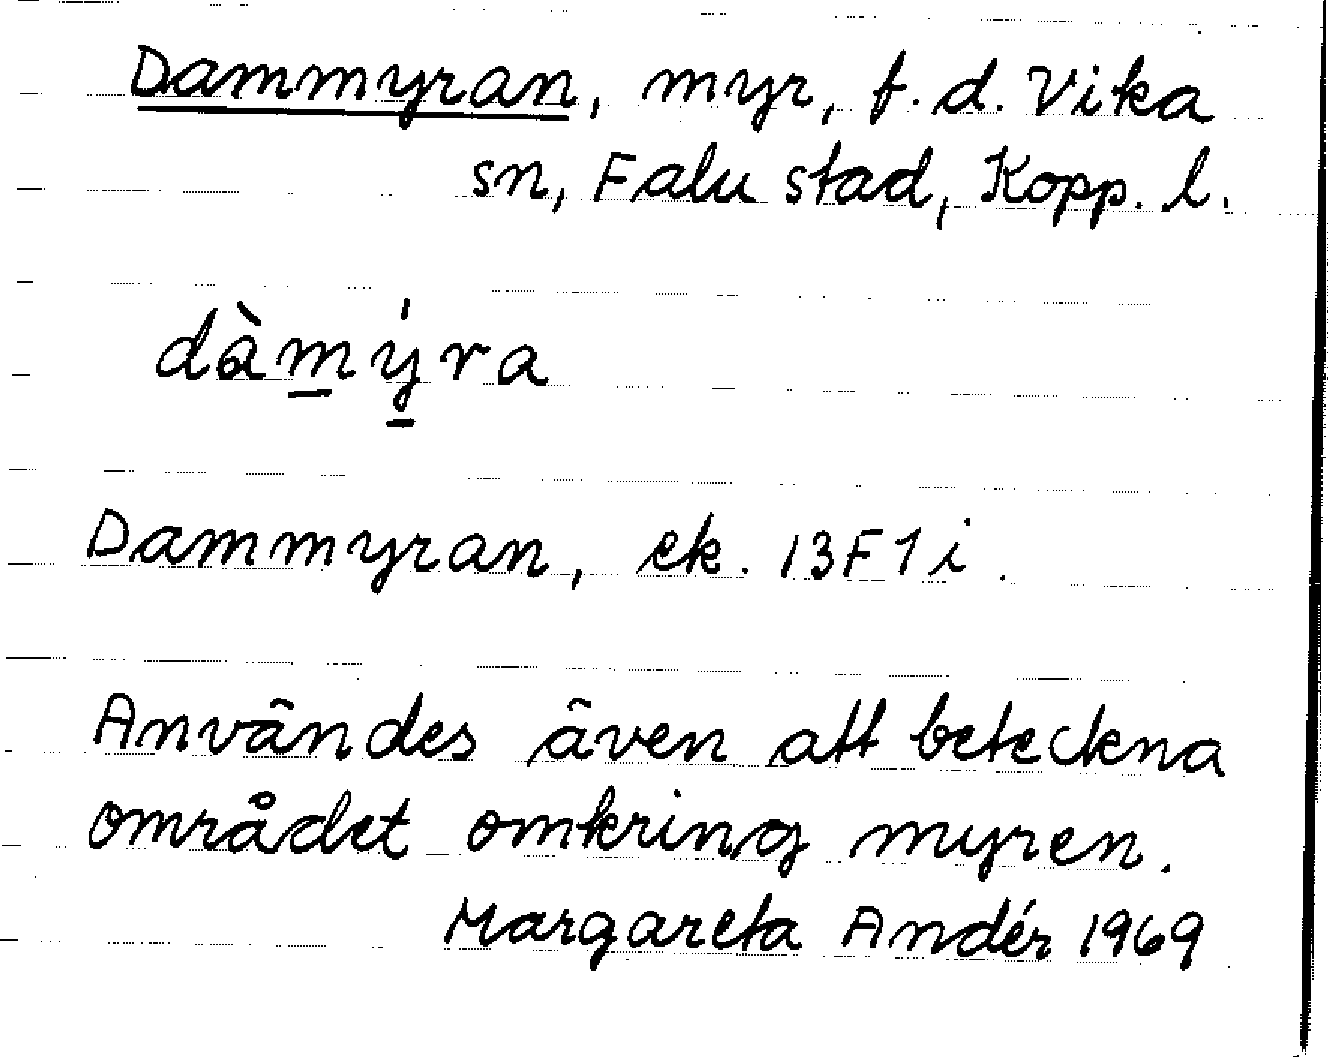 Dammyran, myr, f. d. Vika
sn, Falu stad, Kopp. l.
dàm̲ý̲ra
Dammyran, ek. 13F1i.
Användes även att beteckna
området omkring myren.
Margareta Andér 1969